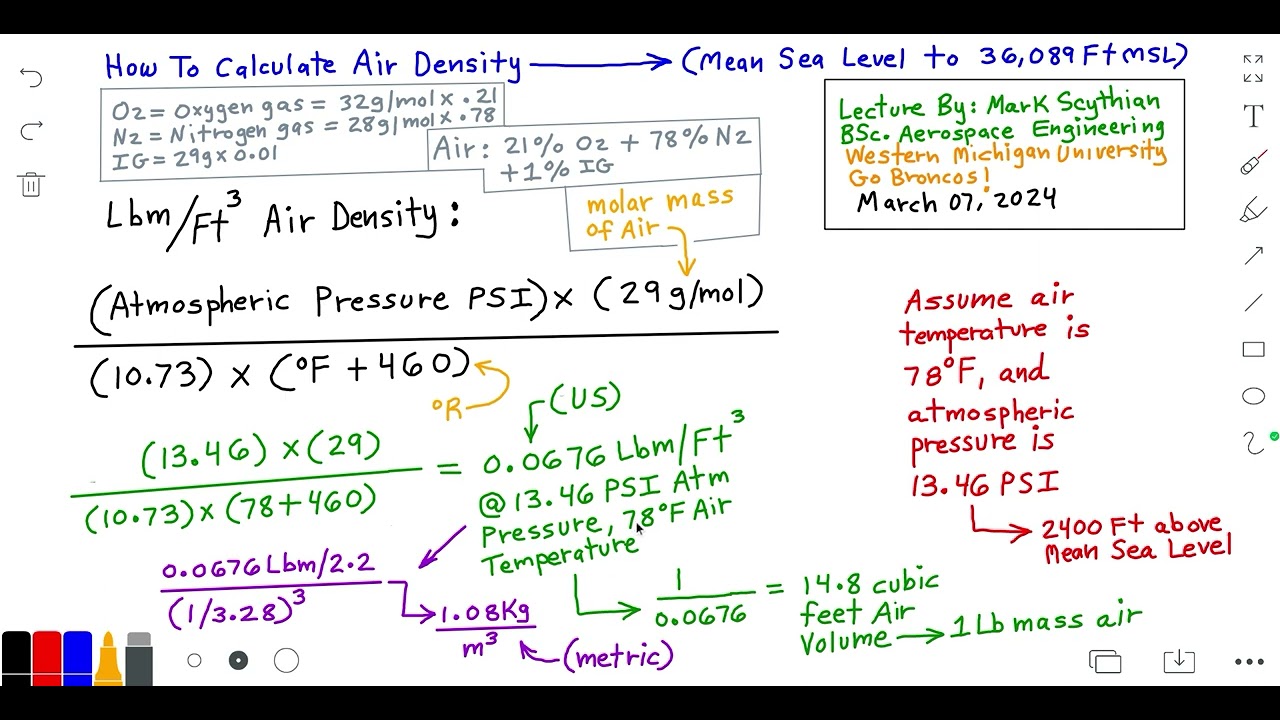 How To Calculate Air Density → (Mean Sea Level to 36,089 Ft MSL)
O2 = Oxygen gas = 32g/mol x .21
N2 = Nitrogen gas = 28g/mol x .78
IG = 29g x 0.01
Air: 21% O2 + 78% N2
+1% IG
Lecture By: Mark Scythian
BSc. Aerospace Engineering
Western Michigan University
Go Broncos!
March 07, 2024
Lbm/Ft³ Air Density:
molar mass
of Air
(Atmospheric Pressure PSI) x (29g/mol)
(10.73) x (°F + 460)
°R
Assume air
temperature is
78°F, and
atmospheric
pressure is
13.46 PSI
2400 Ft above
Mean Sea Level
(US)
(13.46) x (29)
(10.73) x (78+460)
= 0.0676 Lbm/Ft³
@ 13.46 PSI Atm
Pressure, 78°F Air
Temperature
0.0676 Lbm/2.2
(1/3.28)³
1.08Kg
m³
(metric)
1
0.0676
= 14.8 cubic
feet Air
Volume → 1 Lb mass air
T